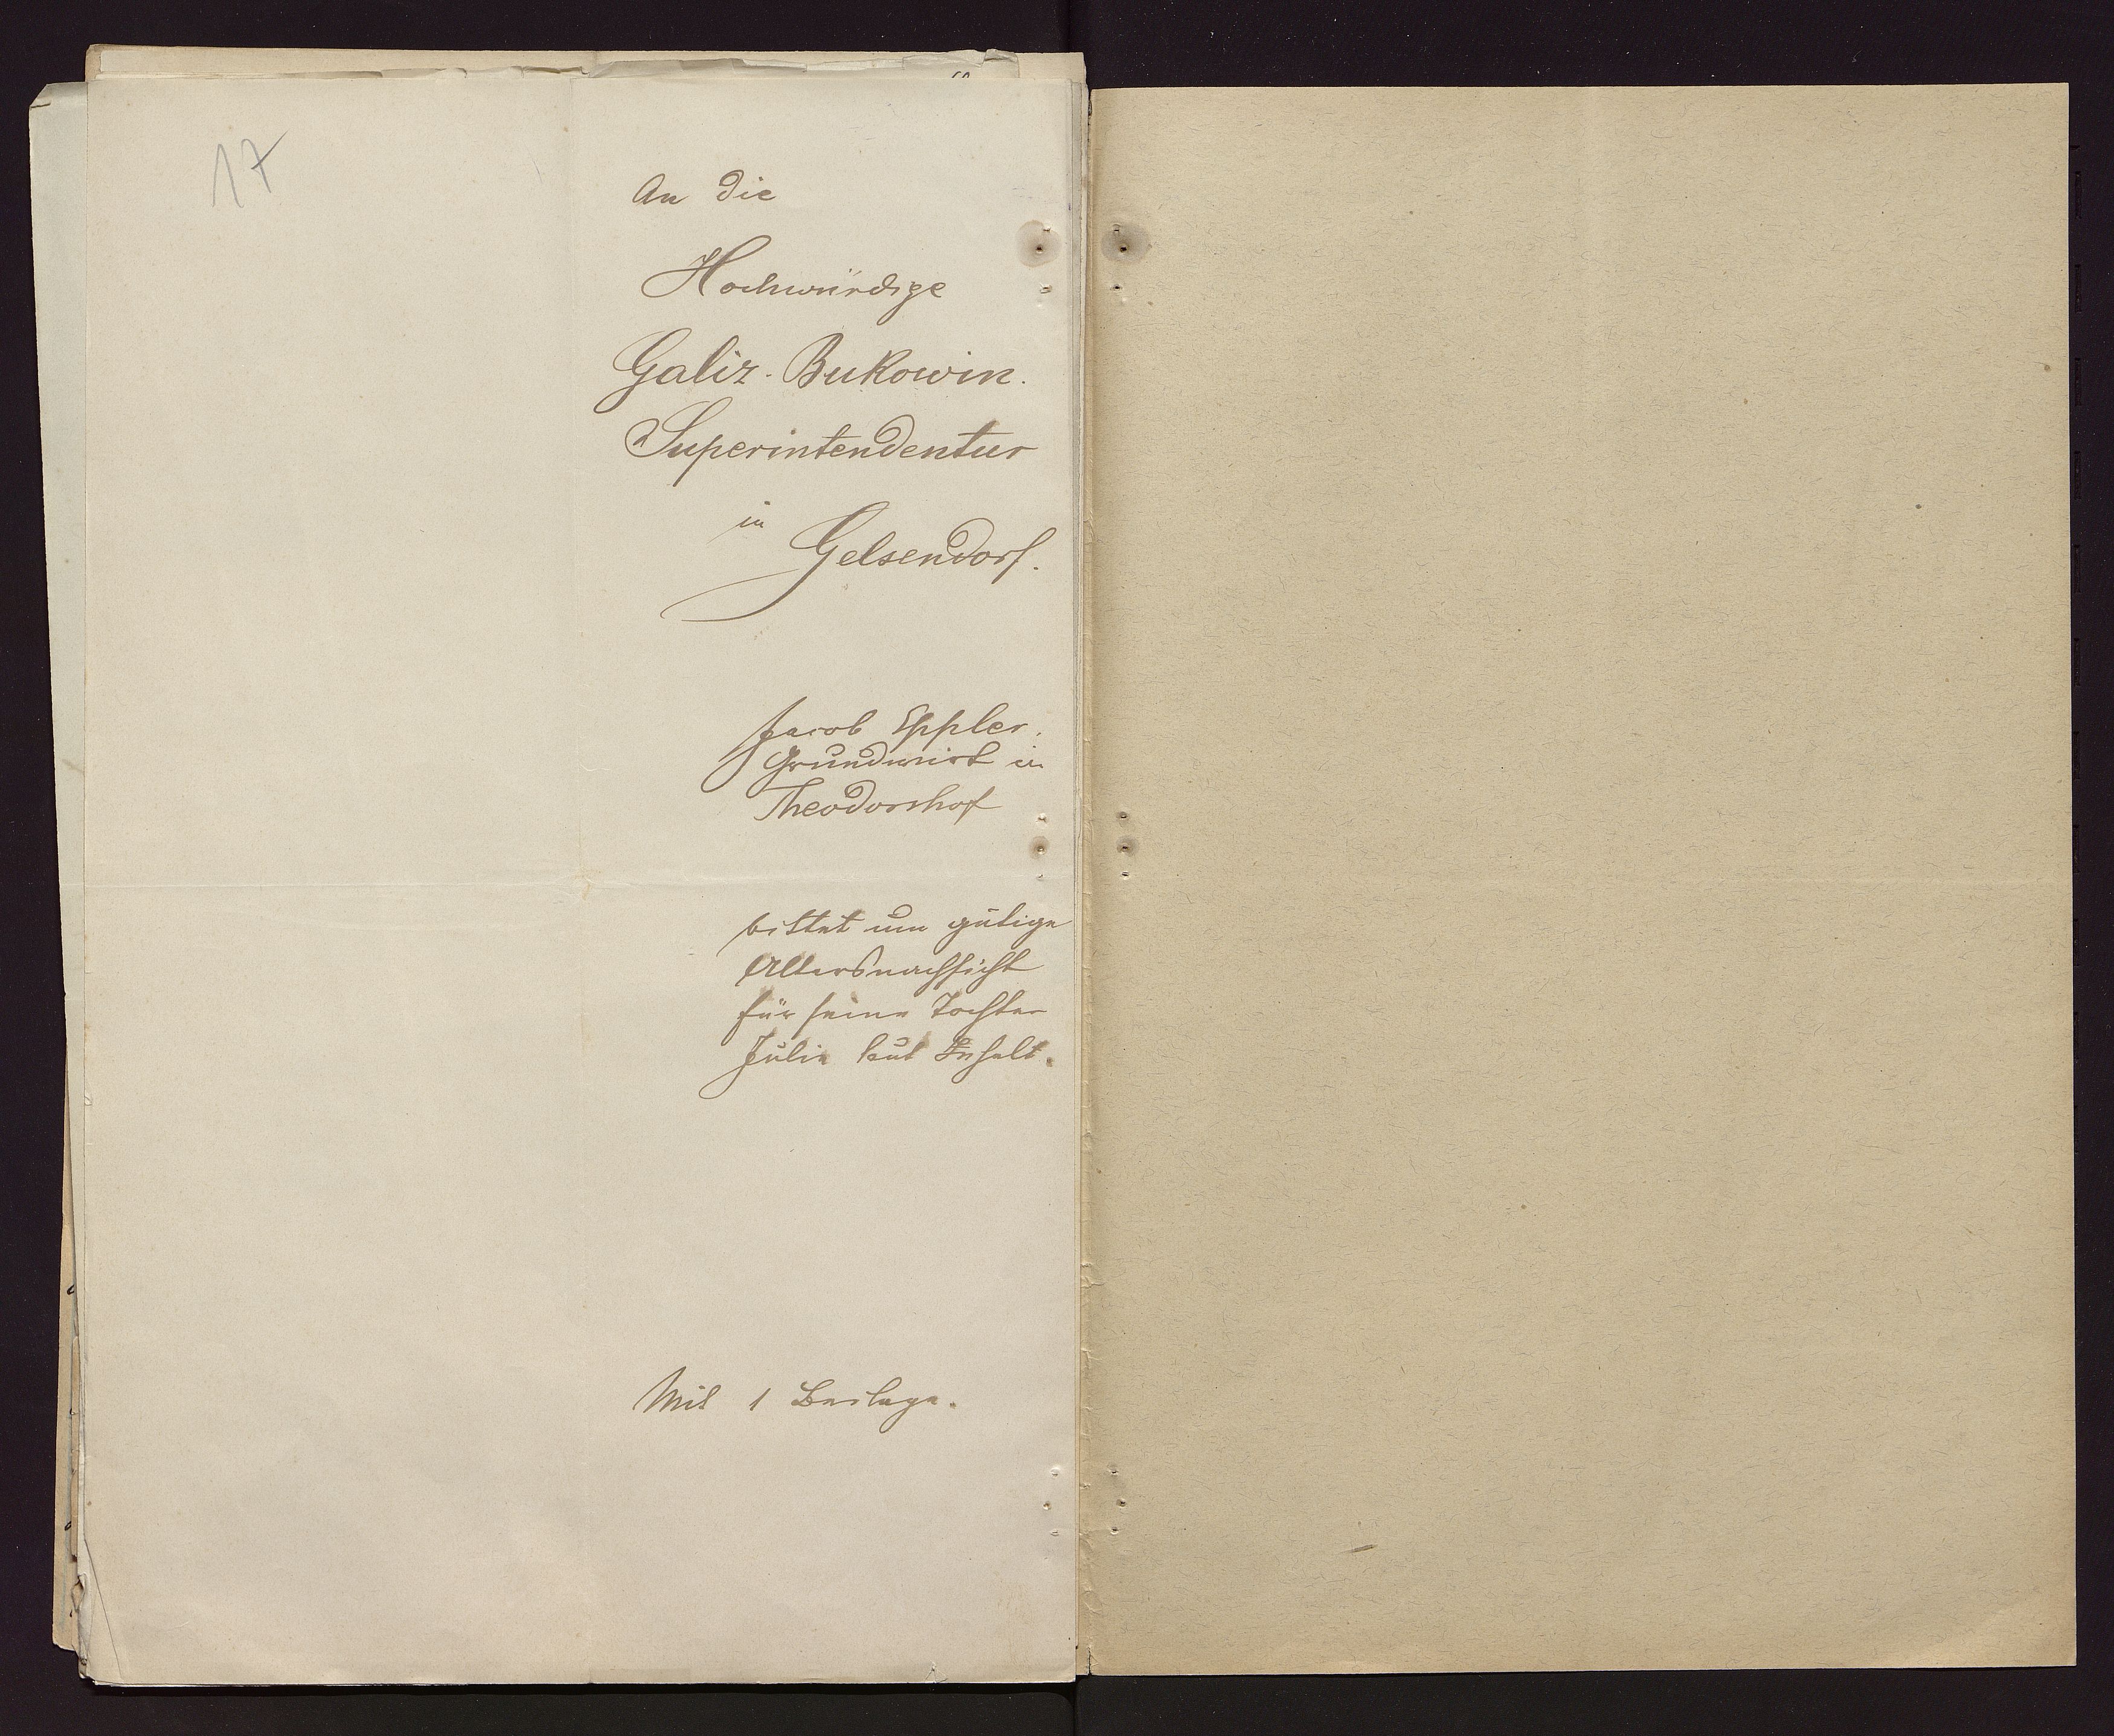 17
An die
Hochwürdige
Galiz. Bukowin.
Superintendentur
in
Gelsendorf.
Jacob Eppler.
Grundwirt in
Theodorshof
bittet um gütige
Altersnachsicht
für seine Tochter
Julie laut Inhalt.
Mit 1 Beilage.